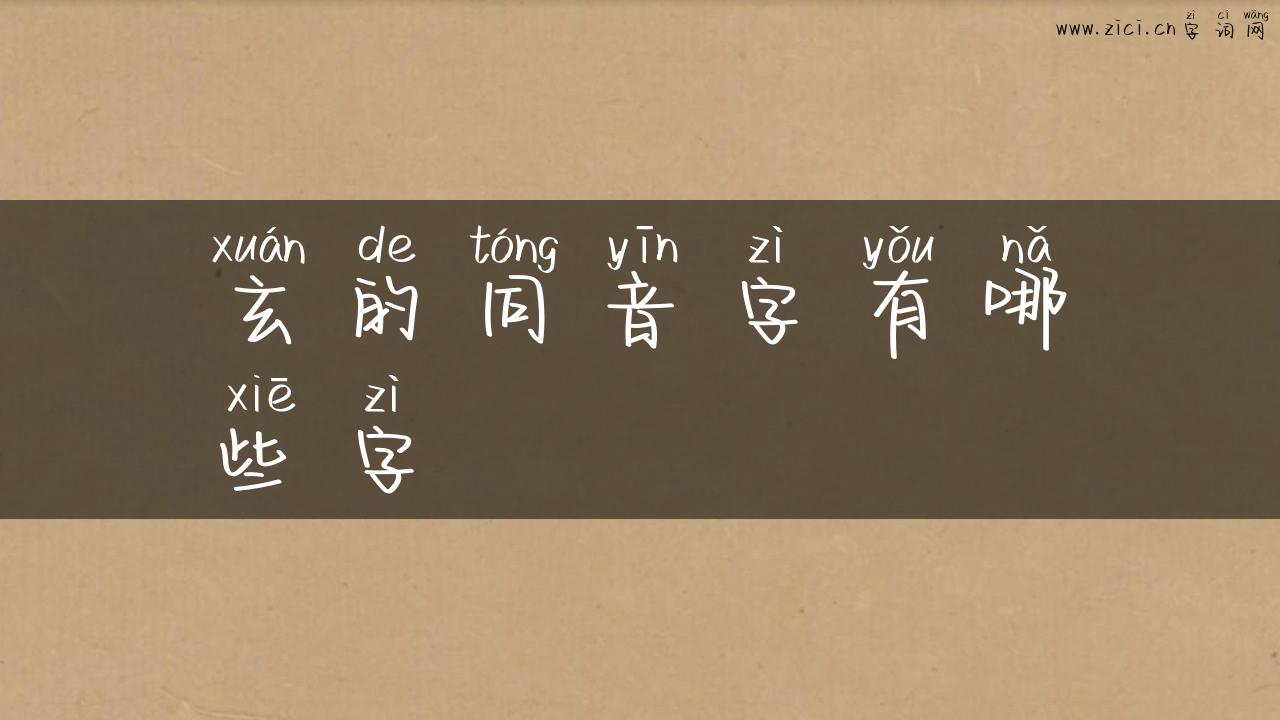 zì cí wǎng
www.zici.cn 字 词 网
xuán de tóng yīn zì yǒu nǎ
玄 的 同 音 字 有 哪
xiē zì
些 字